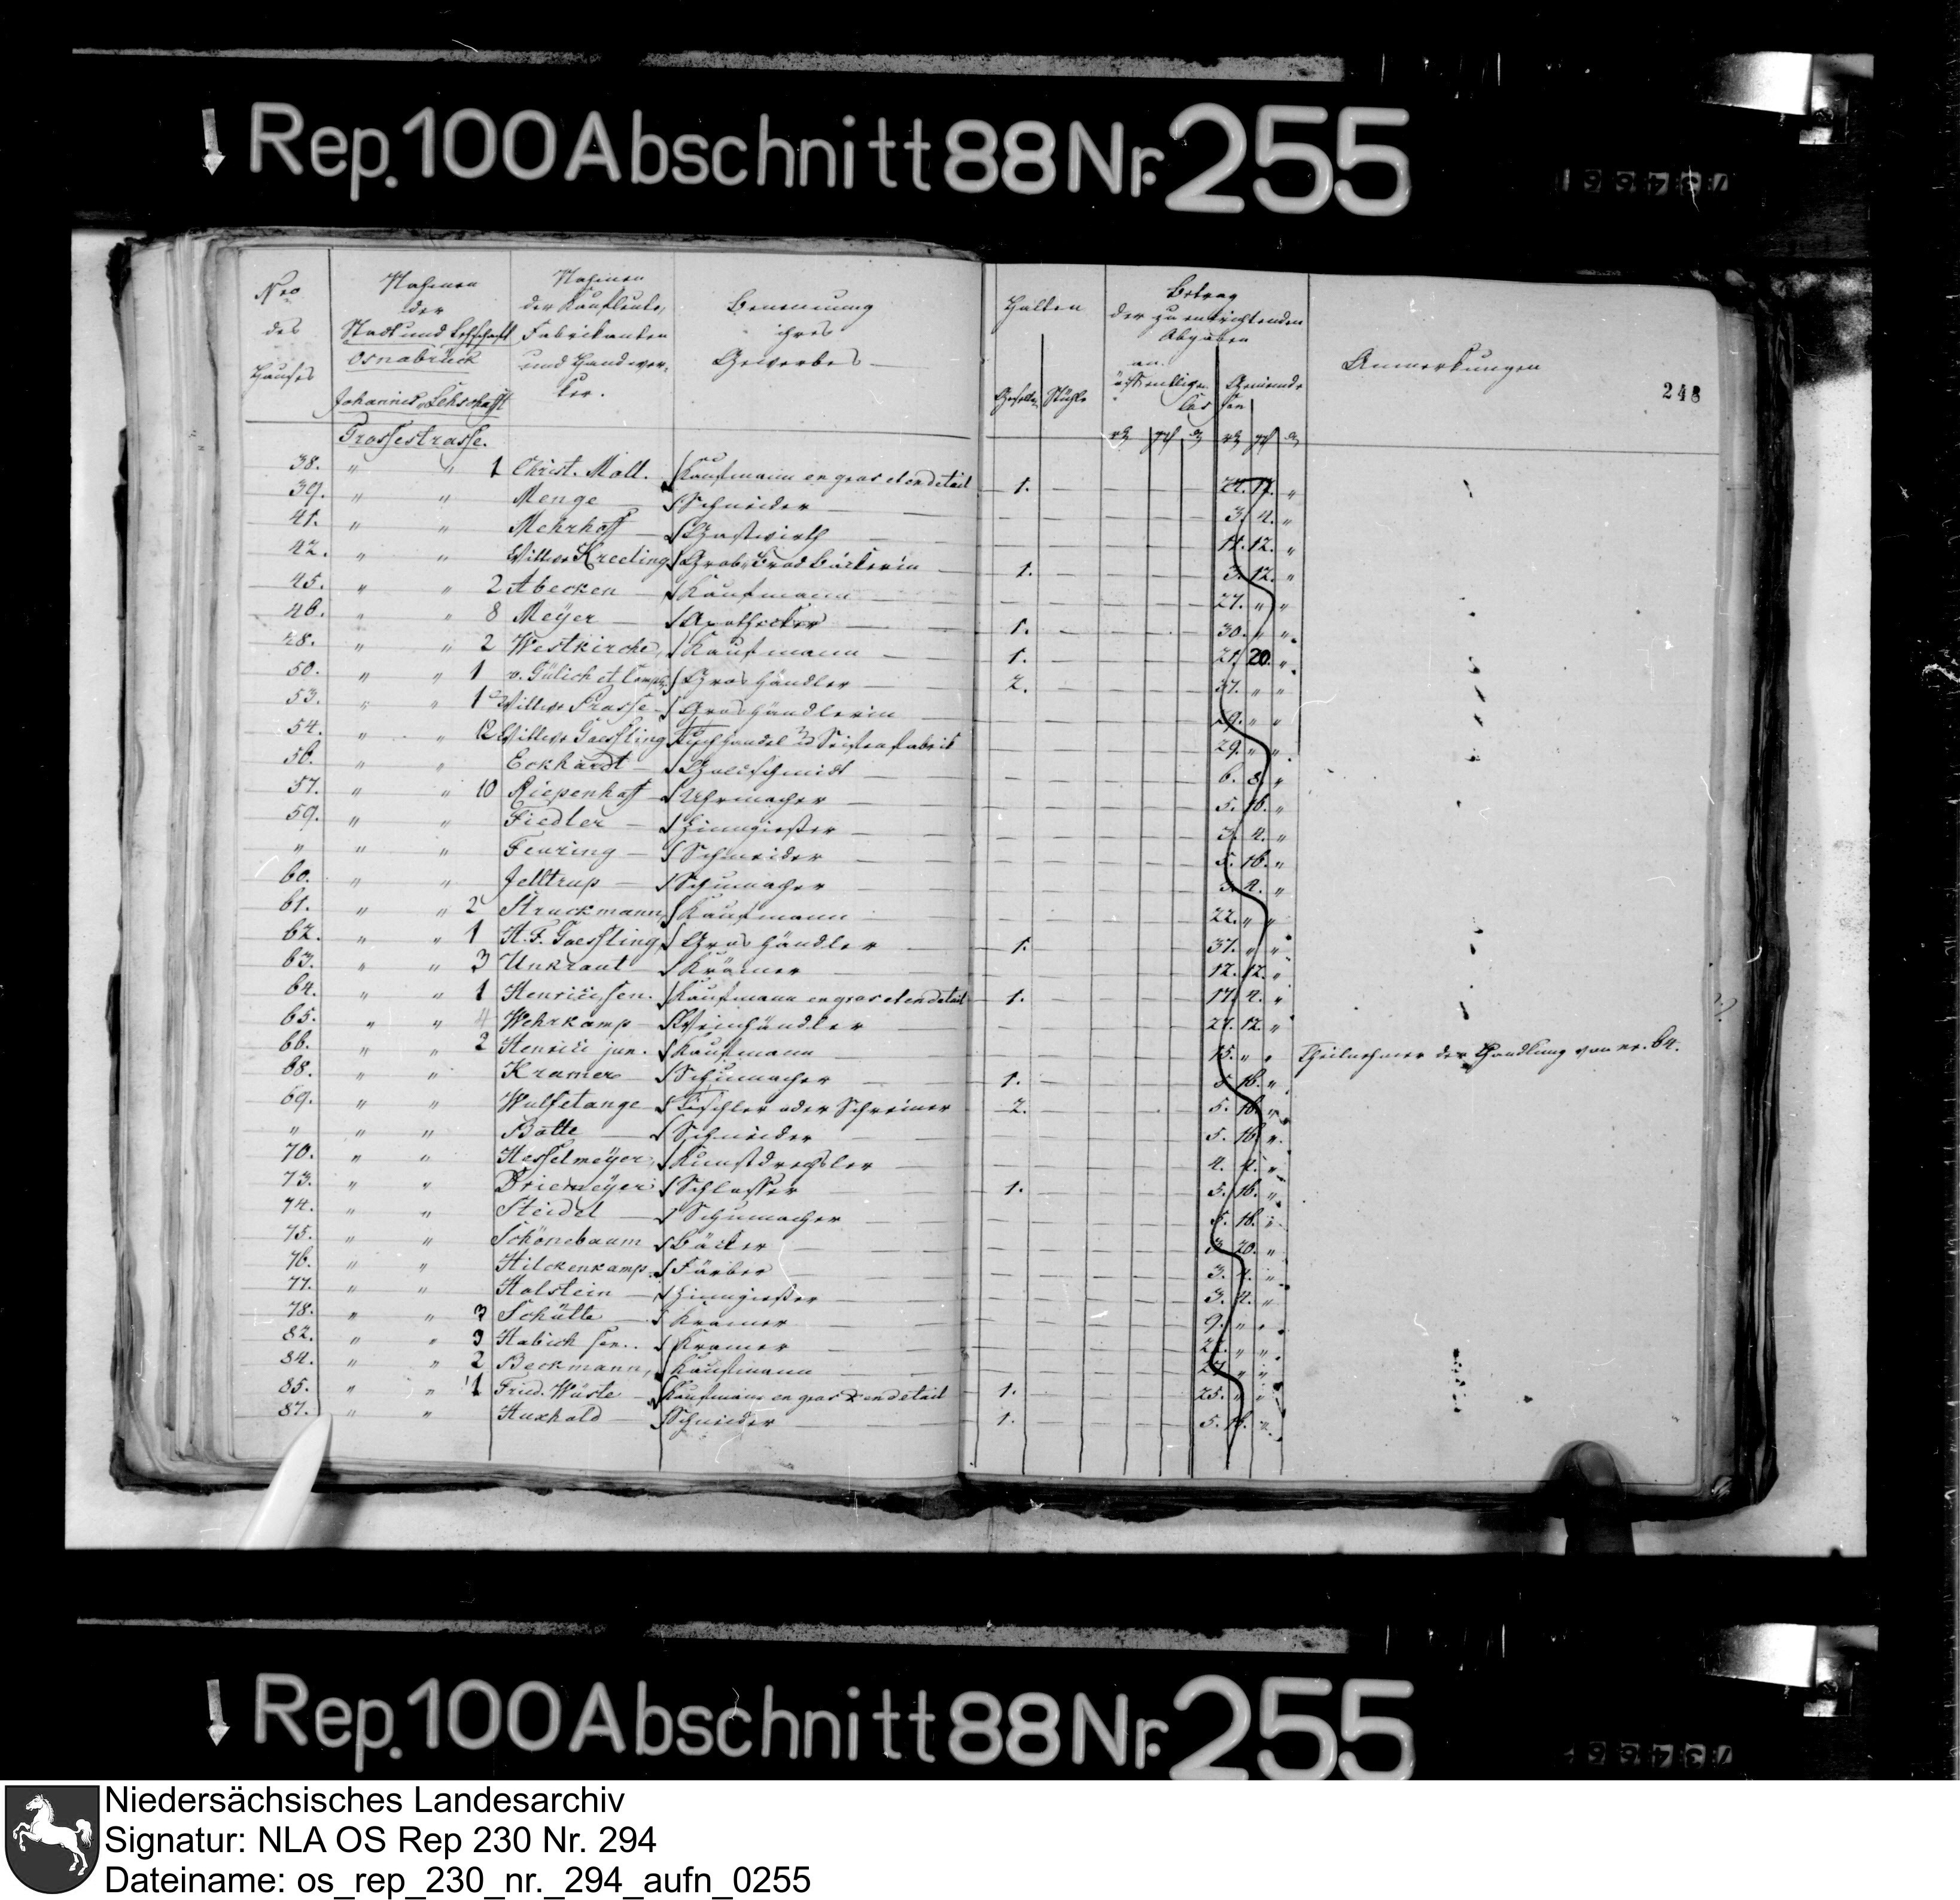 Rep. 100 Abschnitt 88 Nr. 255
Nro des Hauses
Nahmen der Stadt und Leischaft Osnabrück
Nahmen der Kaufleute, Fabrikanten und Handwerker.
Benennung ihres Gewerbes
Halten
Gesellen Stühle
Betrag der zu entrichtenden Abgaben
an öffentlichen Gemeinde
Anmerkungen
248
Johannis Leischafft
Grosse strasse.
38. " " 1 Christ. Moll. Kaufmann en gros et en detail 1. 17. "
39. " " Menge Schneider 3. 4. "
41. " " Mehrhoff Gastwirth 12. "
42. " " Wittwe Kreeling Grob Brod Bäckerin 1. 3. 12. "
45. " " 2 Abecken Kaufmann 27. " "
46. " " 8 Meÿer Apotheker 1. 30. " "
48. " " 2 Westkirche, Kaufmann 1. 21. 20. "
50. " " 1 v. Gülich et Comp. Gros Händler 2. 37. " "
53. " " 1 Wittwe Grosse Gros Händlerin 29. " "
54. " " 12 Wittwe Gaessling 29. " "
56. " " Eckhardt Goldschmidt 6. 8. "
57. " " 10 Riepenhoff Uhrmacher 5. 16. "
59. " " Fiedler Zinngießer 3. 4. "
" " " Feuring Schneider 5. 16. "
60. " " Jelltrup Schumacher 3. 4. "
61. " " 2 Struckmann, Kaufmann 22. " "
62. " " 1 H. F. Gaessling, Gros Händler 1. 37. " "
63. " " 3 Unkraut Krämer 12. 12. "
64. " " 1 Henrici sen. Kaufmann en gros et en detail 1. 17. 4. "
65. " " 4 Wehrkamp Weinhändler 27. 12. "
66. " " 2 Henrici jun. Kaufmann 15. " " Theilnehmer der Handlung von nr. 64.
68. " " Kramer Schumacher 1. 5. 16. "
69. " " Wulfetange Tischler oder Schreiner 2. 5. 16. "
" " " Botte Schneider 5. 16. "
70. " " Hesselmeÿer, Kunstdrechsler 4. 4. "
73. " " Driemeÿer Schlosser 1. 5. 16. "
74. " " Steidel Schumacher 5. 16. "
75. " " Schönebaum Bäcker 3. 20. "
76. " " Hilckenkamp. Färber 3. 4. "
77. " " Holstein Zinngießer 3. 4. "
78. " " 3 Schütte Kramer 9. " "
82. " " 3 Habich sen. Kramer " "
84. " " 2 Beckmann, Kaufmann 27. " "
85. " " 1 Fried. Wüste Kaufmann en gros & en detail 1. 25. " "
87. " " Huxhold Schneider 1. 5. 16. "
Rep. 100 Abschnitt 88 Nr. 255
Niedersächsisches Landesarchiv
Signatur: NLA OS Rep 230 Nr. 294
Dateiname: os_rep_230_nr._294_aufn_0255